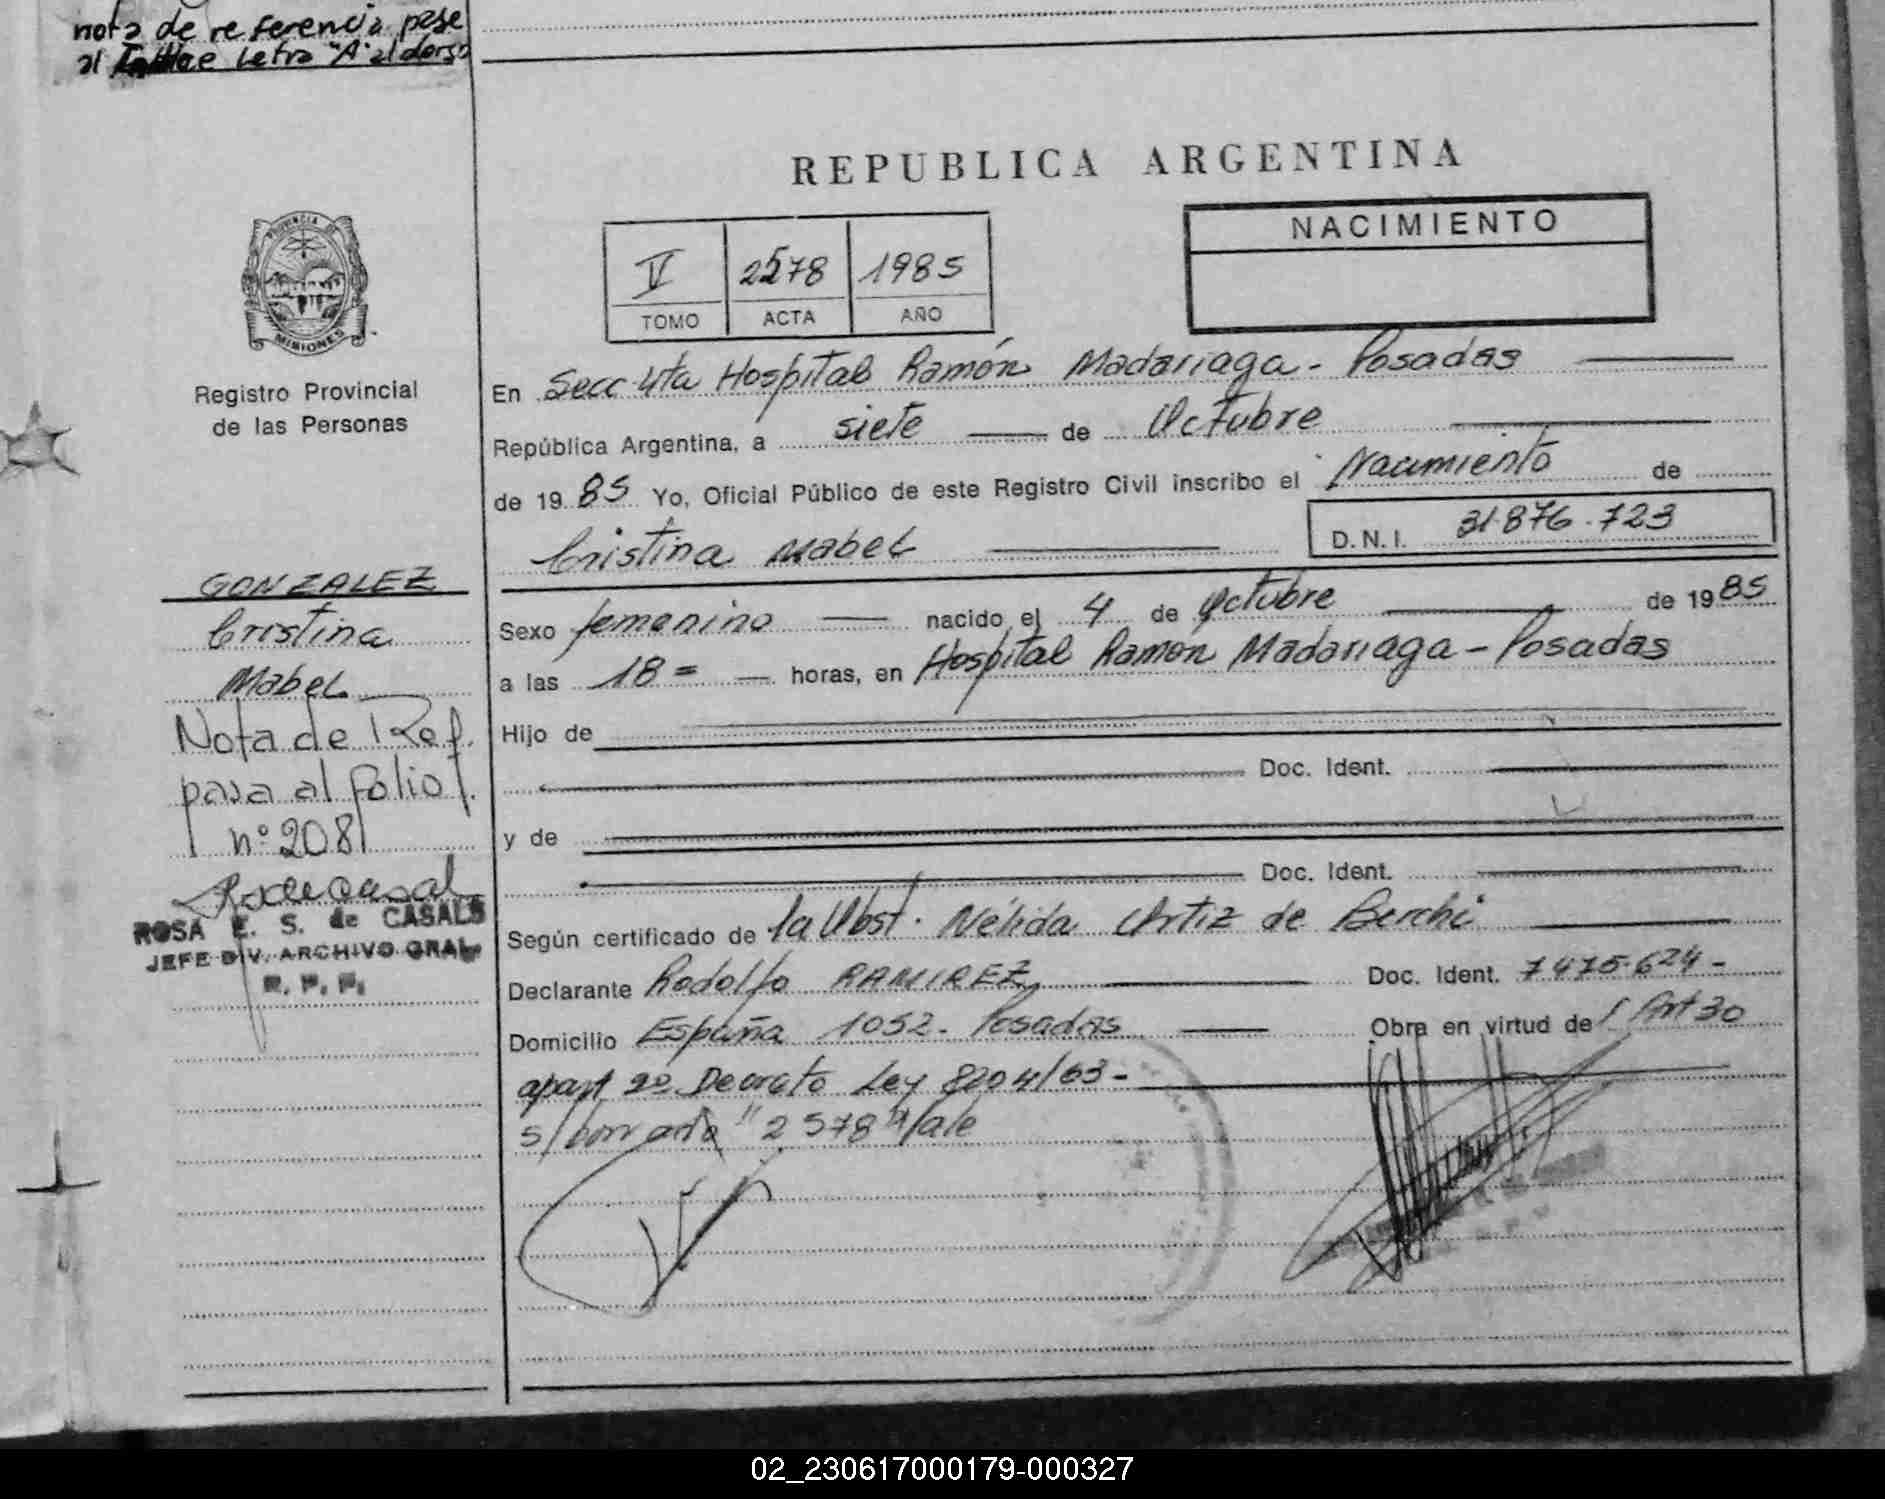 nota de referencia pase
al Indice Letra "A" al dorso
REPUBLICA ARGENTINA
PROVINCIA DE
MISIONES
Registro Provincial
de las Personas
V 2578 1985
TOMO ACTA AÑO
NACIMIENTO
En Secc 4ta Hospital Ramón Madariaga - Posadas
República Argentina, a siete de Octubre
de 19 85 Yo, Oficial Público de este Registro Civil inscribo el Nacimiento de
Cristina Mabel
D.N.I. 31.876.723
GONZALEZ
Cristina
Mabel
Nota de Ref.
pasa al folio
nº 208
ROSA E. S. de CASALS
JEFE DIV. ARCHIVO GRAL.
R. P. P.
Sexo femenino nacido el 4 de Octubre de 19 85
a las 18 = horas, en Hospital Ramón Madariaga - Posadas
Hijo de
Doc. Ident.
y de
Doc. Ident.
Según certificado de la Obst. Nélida Ortiz de Berchi
Declarante Rodolfo RAMIREZ Doc. Ident. 7475.624 -
Domicilio España 1052 - Posadas Obra en virtud del Art 30
apart 2º Decreto Ley 8204/63 -
s/borrado "2578" Vale
02_230617000179-000327